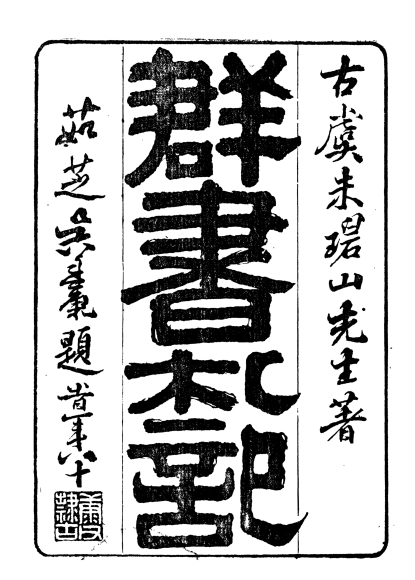 古虞朱碧山先生著
群書札記
茹芝吳題旹年八十